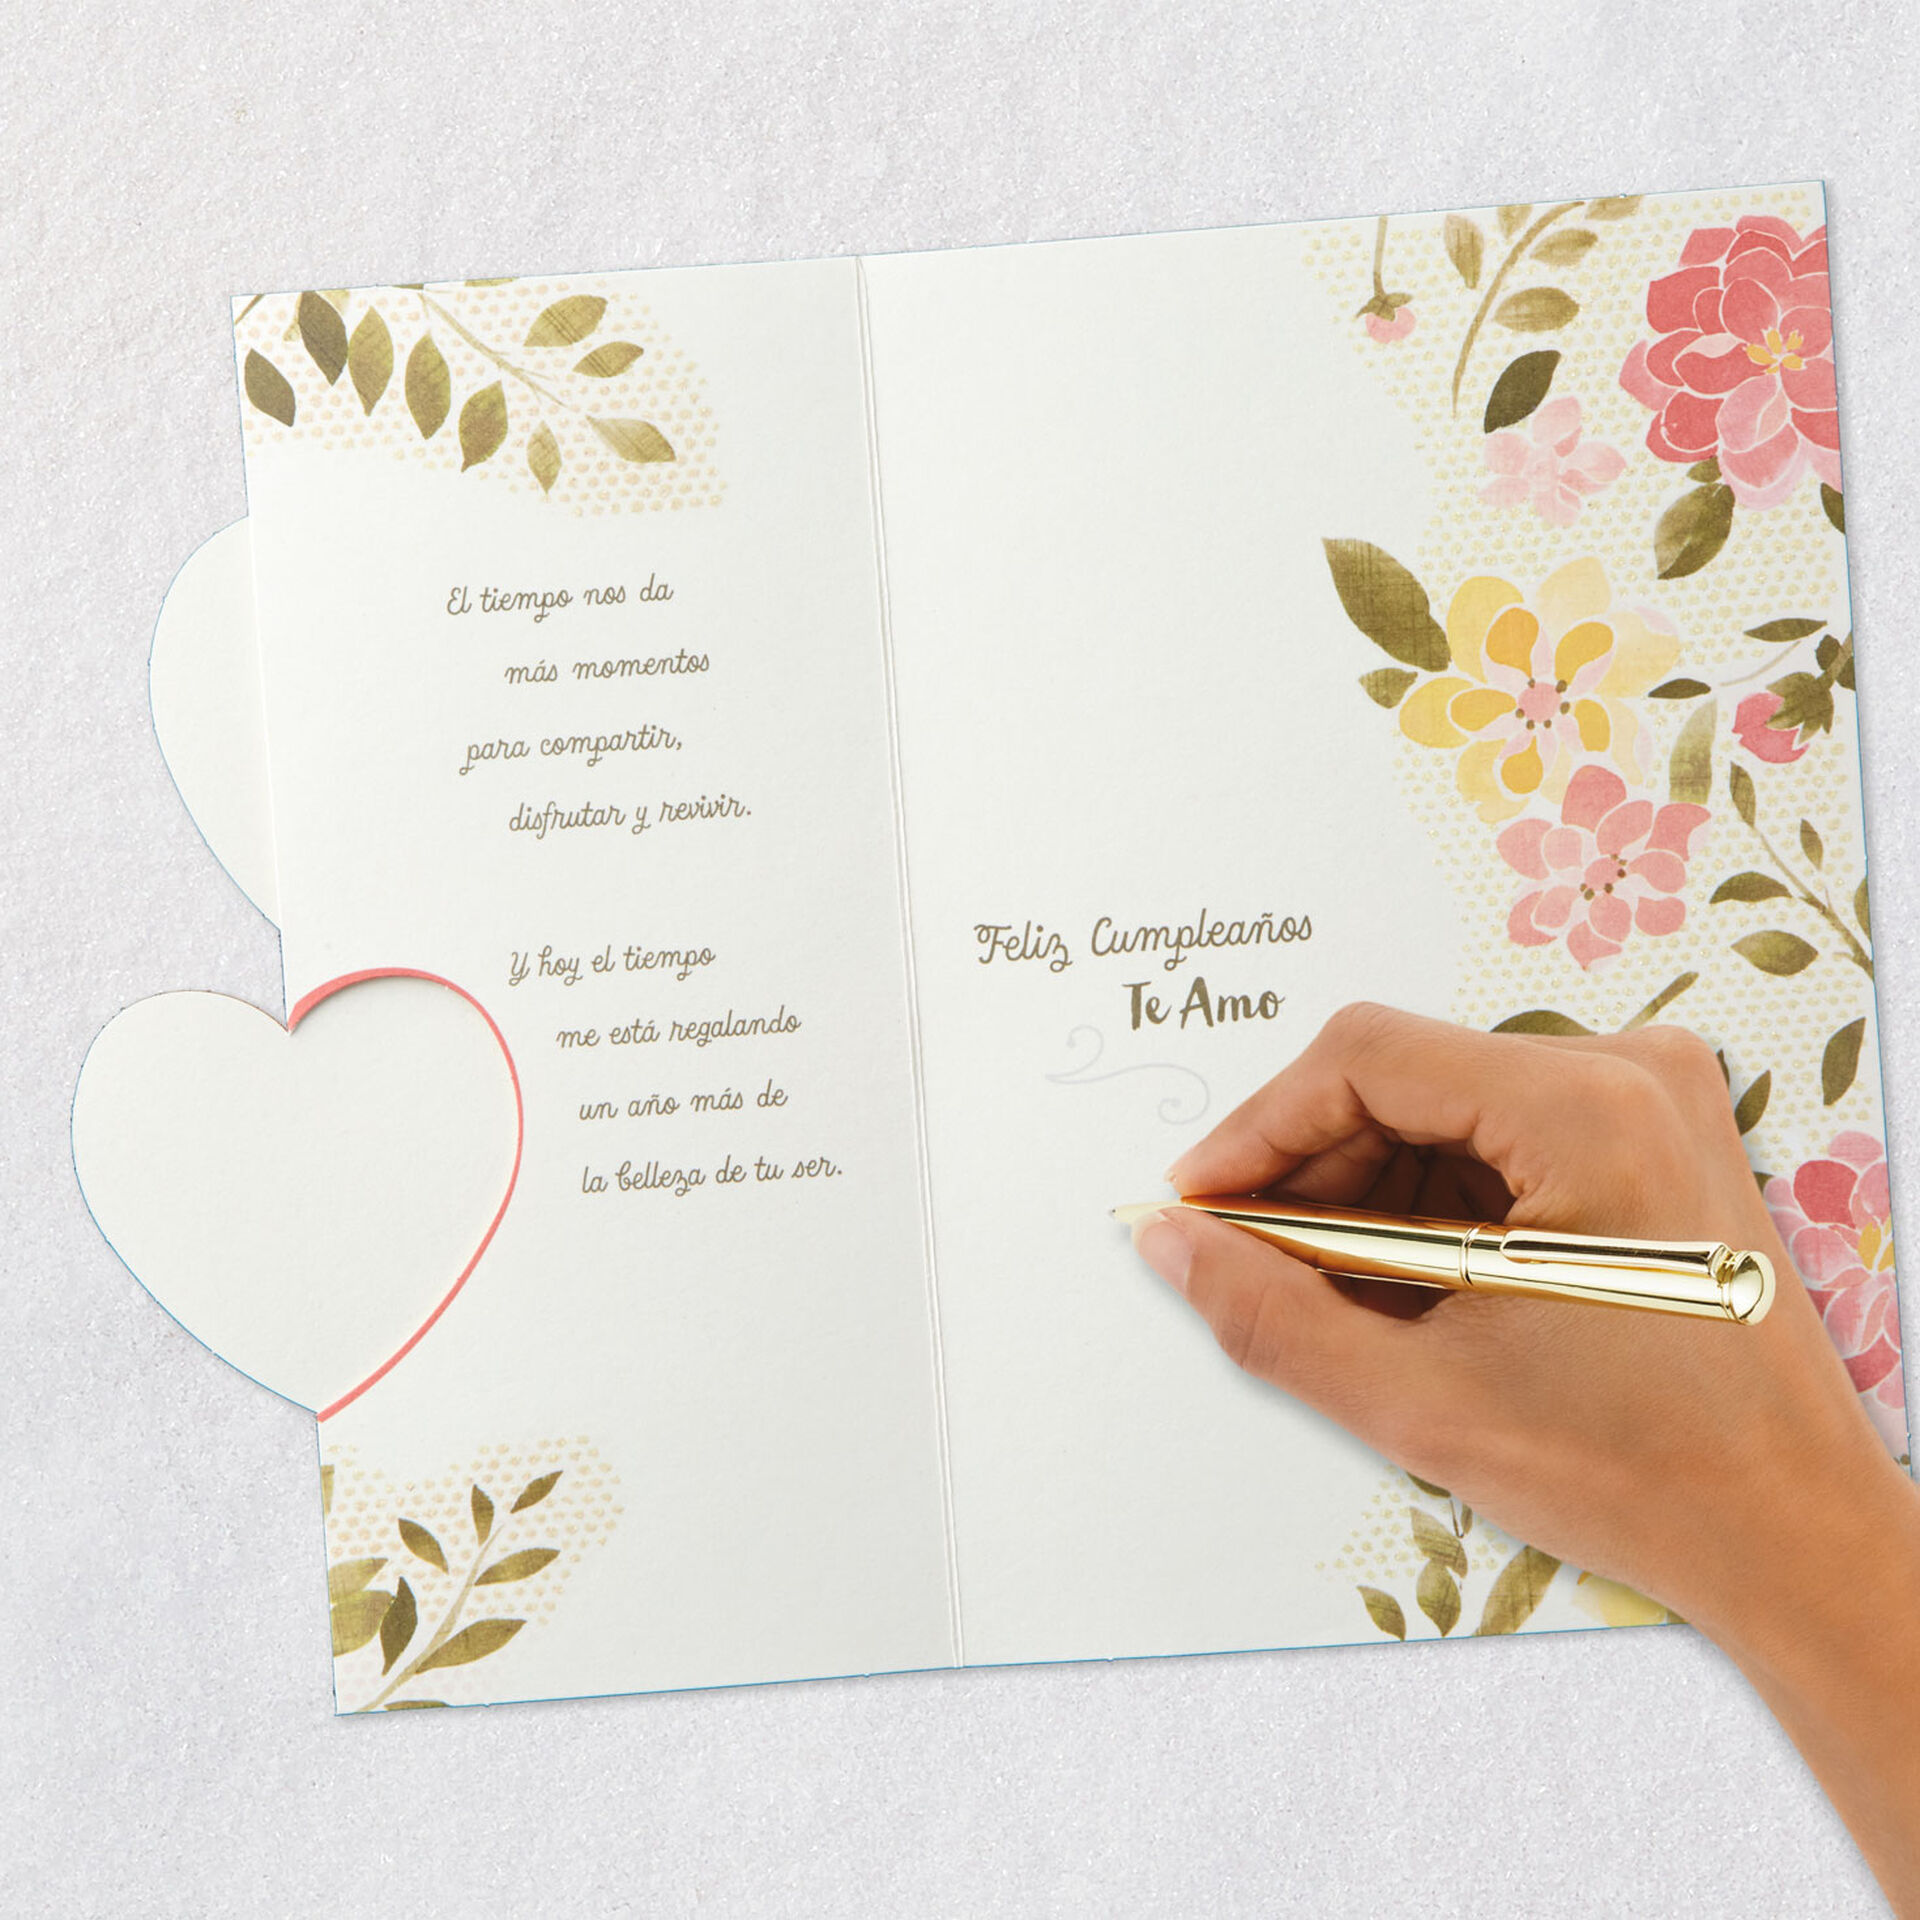 El tiempo nos da
más momentos
para compartir,
disfrutar y revivir.
Y hoy el tiempo
me está regalando
un año más de
la belleza de tu ser.
Feliz Cumpleaños
Te Amo